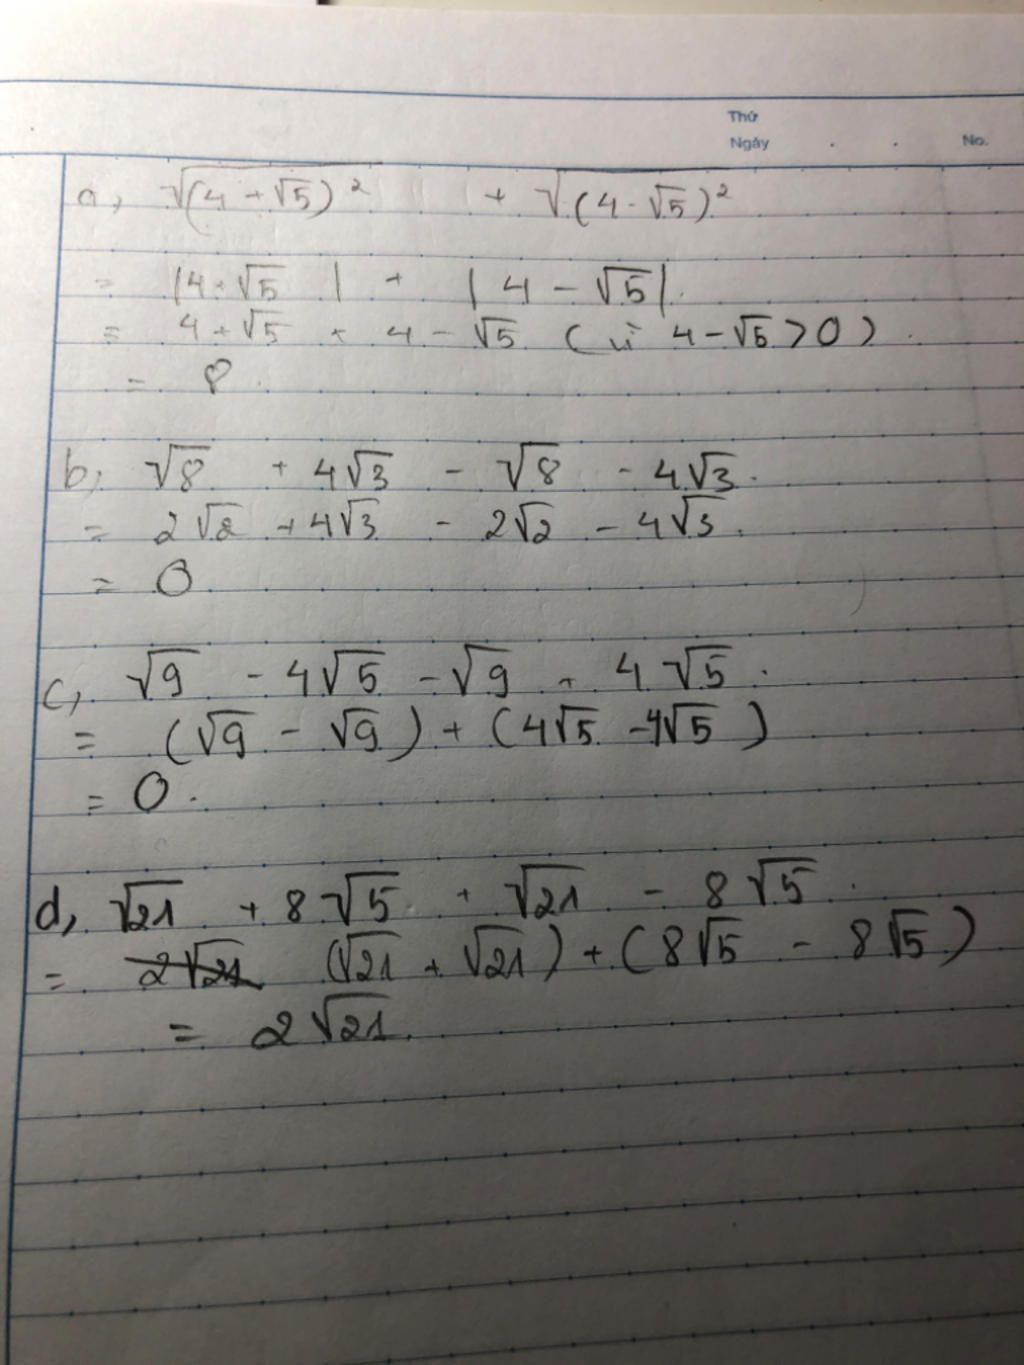 Thứ
Ngày . . No.
a, √(4+√5)² + √(4-√5)²
= |4+√5| + |4-√5|.
= 4+√5 + 4-√5 (vì 4-√5>0).
= 8.
b, √8 + 4√3 - √8 - 4√3.
= 2√2 + 4√3 - 2√2 - 4√3.
= 0
c, √9 - 4√5 - √9 + 4√5.
= (√9 - √9) + (4√5 - 4√5)
= 0.
d, √21 + 8√5 + √21 - 8√5.
= 2√21 (√21 + √21) + (8√5 - 8√5)
= 2√21.